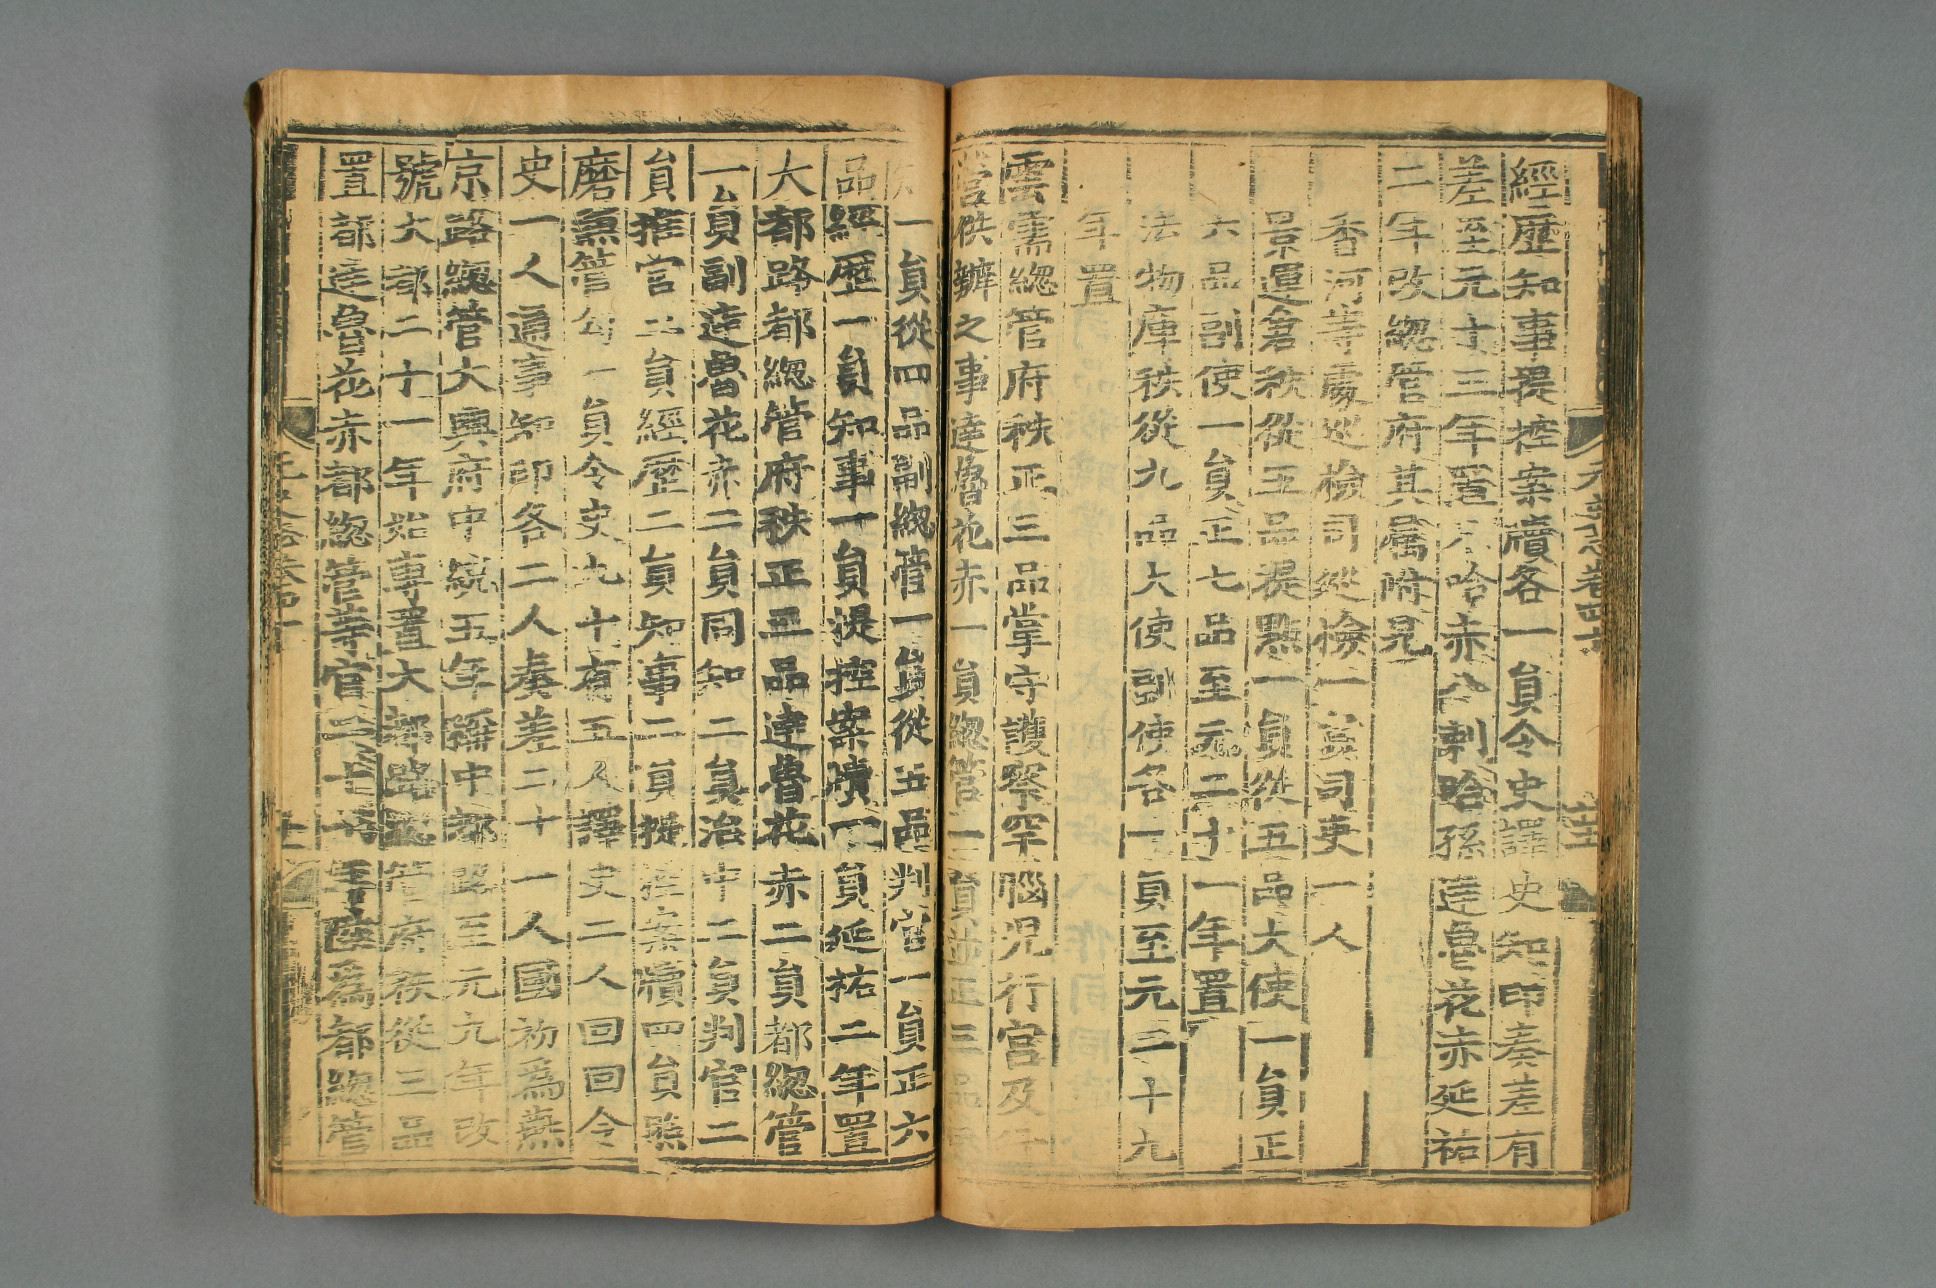 經歷知事提控案牘各一員令史譯史知印奏差有
差至元十三年置八哈赤八剌哈孫達魯花赤延祐
二年改總管府其屬附見
香河等處巡檢司巡檢一員司吏一人
景運倉秩從五品提點一員從五品大使一員正
六品副使一員正七品至元二十一年置
法物庫秩從九品大使副使各一員至元二十九
年置
雲需總管府秩正三品掌守護察罕腦兒行宮及
營供辦之事達魯花赤一員總管一員並正三品
一員從四品副總管一員從五品判官一員正六
品經歷一員知事一員提控案牘一員延祐二年置
大都路都總管府秩正三品達魯花赤二員都總管
一員副達魯花赤二員同知二員治中二員判官二
員推官二員經歷二員知事二員提控案牘四員照
磨兼管勾一員令史九十有五人譯史二人回回令
史一人通事知印各二人奏差二十一人國初為燕
京路總管大興府中統五年稱中都路至元九年改
號大都二十一年始專置大都路總管府秩從三品
置都達魯花赤都總管等官二十七年陞為都總管